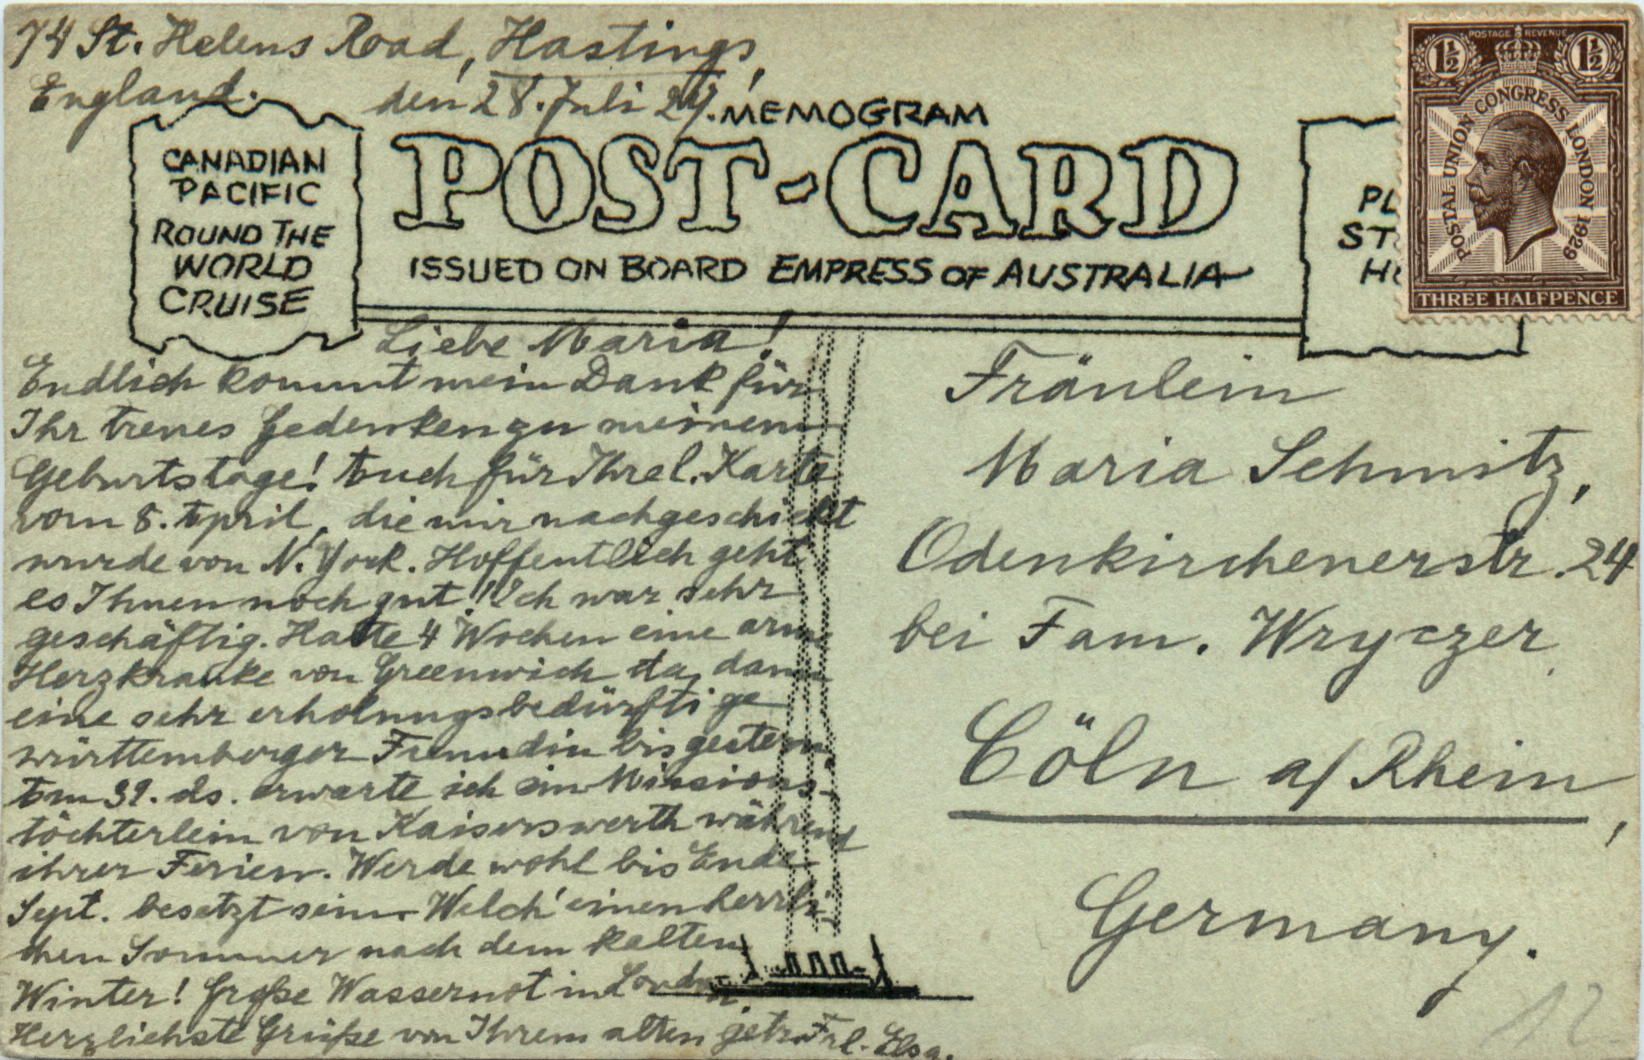 74 St. Helens Road, Hastings,
England. den 28. Juli 29.
MEMOGRAM
POST-CARD
ISSUED ON BOARD EMPRESS OF AUSTRALIA
CANADIAN
PACIFIC
ROUND THE
WORLD
CRUISE
PL
ST
H
1½ POSTAGE REVENUE 1½
POSTAL UNION CONGRESS LONDON 1929
THREE HALFPENCE
Liebe Maria!
Endlich kommt mein Dank für
Ihr treues Gedenken zu meinem
Geburtstage! Auch für Ihre l. Karte
vom 8. April, die mir nachgeschickt
wurde von N. York. Hoffentlich geht
es Ihnen noch gut! Ich war sehr
geschäftig. Hatte 4 Wochen eine arme
Herzkranke von Greenwich da, dann
eine sehr erholungsbedürftige
württemberger Freundin bis gestern.
Am 31. ds. erwarte ich ein Missions-
töchterlein von Kaiserswerth während
ihrer Ferien. Werde wohl bis Ende
Sept. besetzt sein. Welch' einen herrli-
chen Sommer nach dem kalten
Winter! Große Wassernot in London.
Herzlichste Grüße von Ihrem alten Frl. Elsa.
Fräulein
Maria Schmitz,
Odenkirchenerstr. 24
bei Fam. Wryczer
Cöln a/ Rhein,
Germany.
12